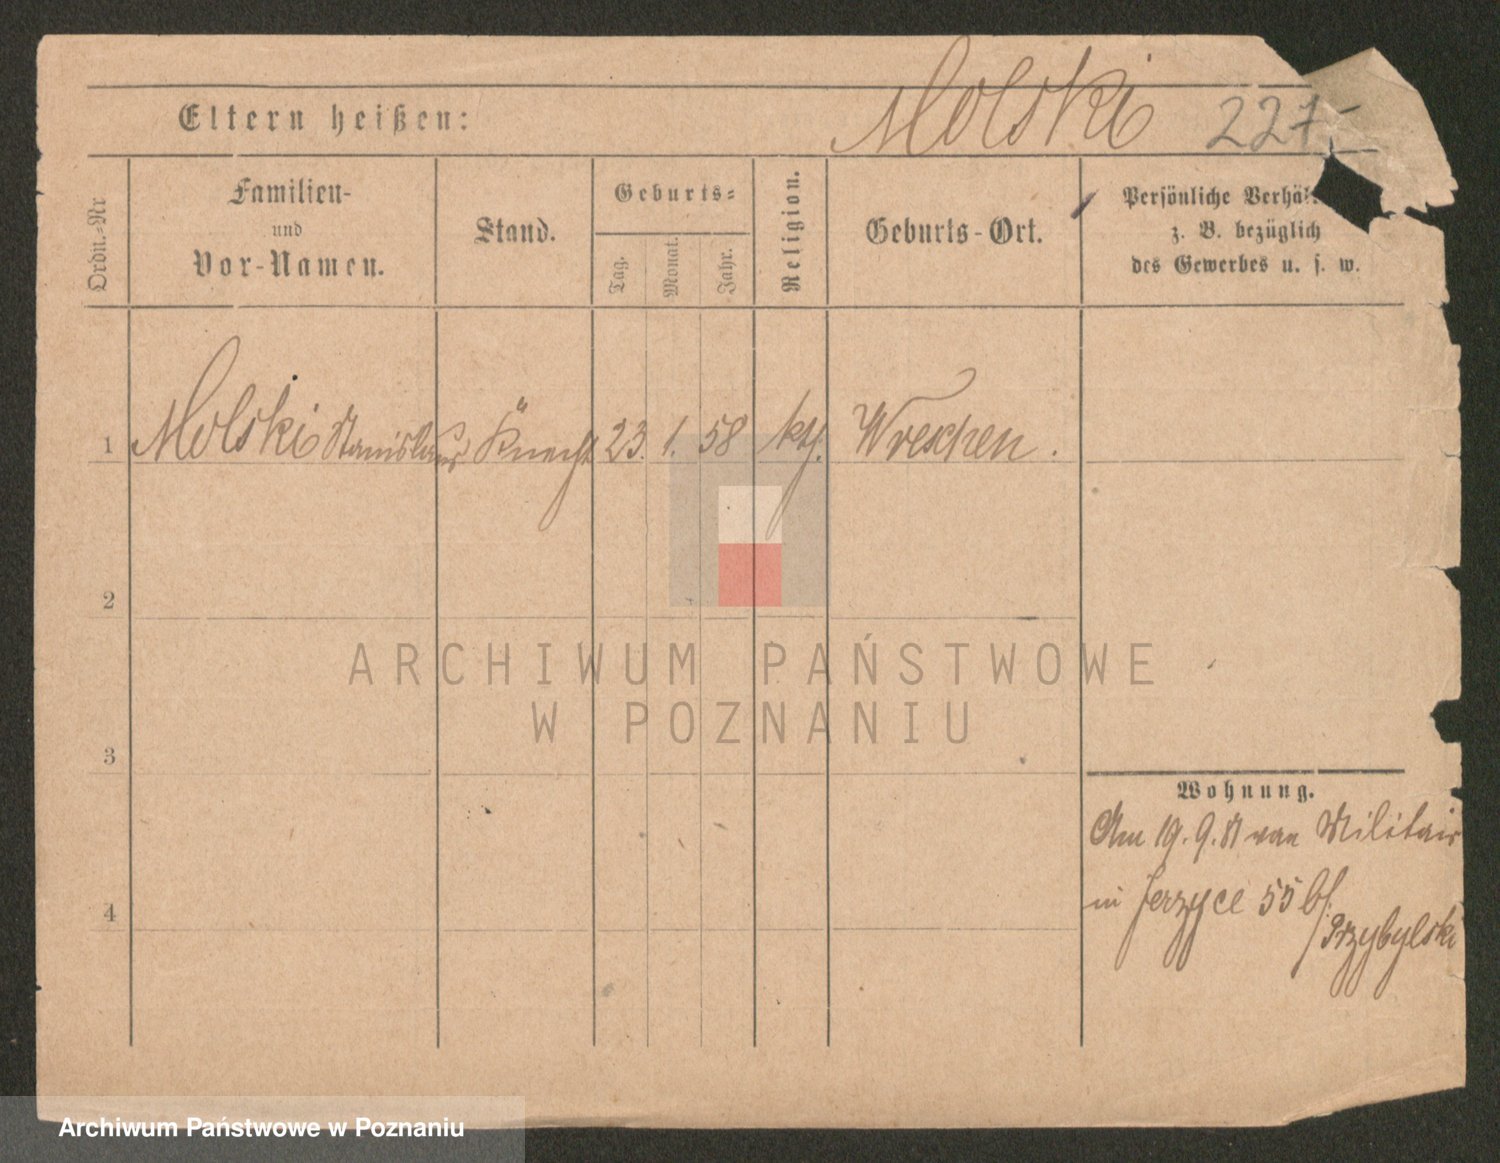 Molski 227
Eltern heißen:
Ordn.-Nr
Familien-
und
Vor-Namen.
Stand.
Geburts-
Tag.
Monat.
Jahr.
Religion.
Geburts-Ort.
Persönliche Verhäl
z. B. bezüglich
des Gewerbes u. s. w.
1 Molski Stanislaus Knecht 23. 1. 58 kth. Wreschen.
2
3
4
Wohnung.
Am 19. 9. 81 van Militair
in Jerzyce 55 bf.
Przybylski
ARCHIWUM PAŃSTWOWE
W POZNANIU
Archiwum Państwowe w Poznaniu